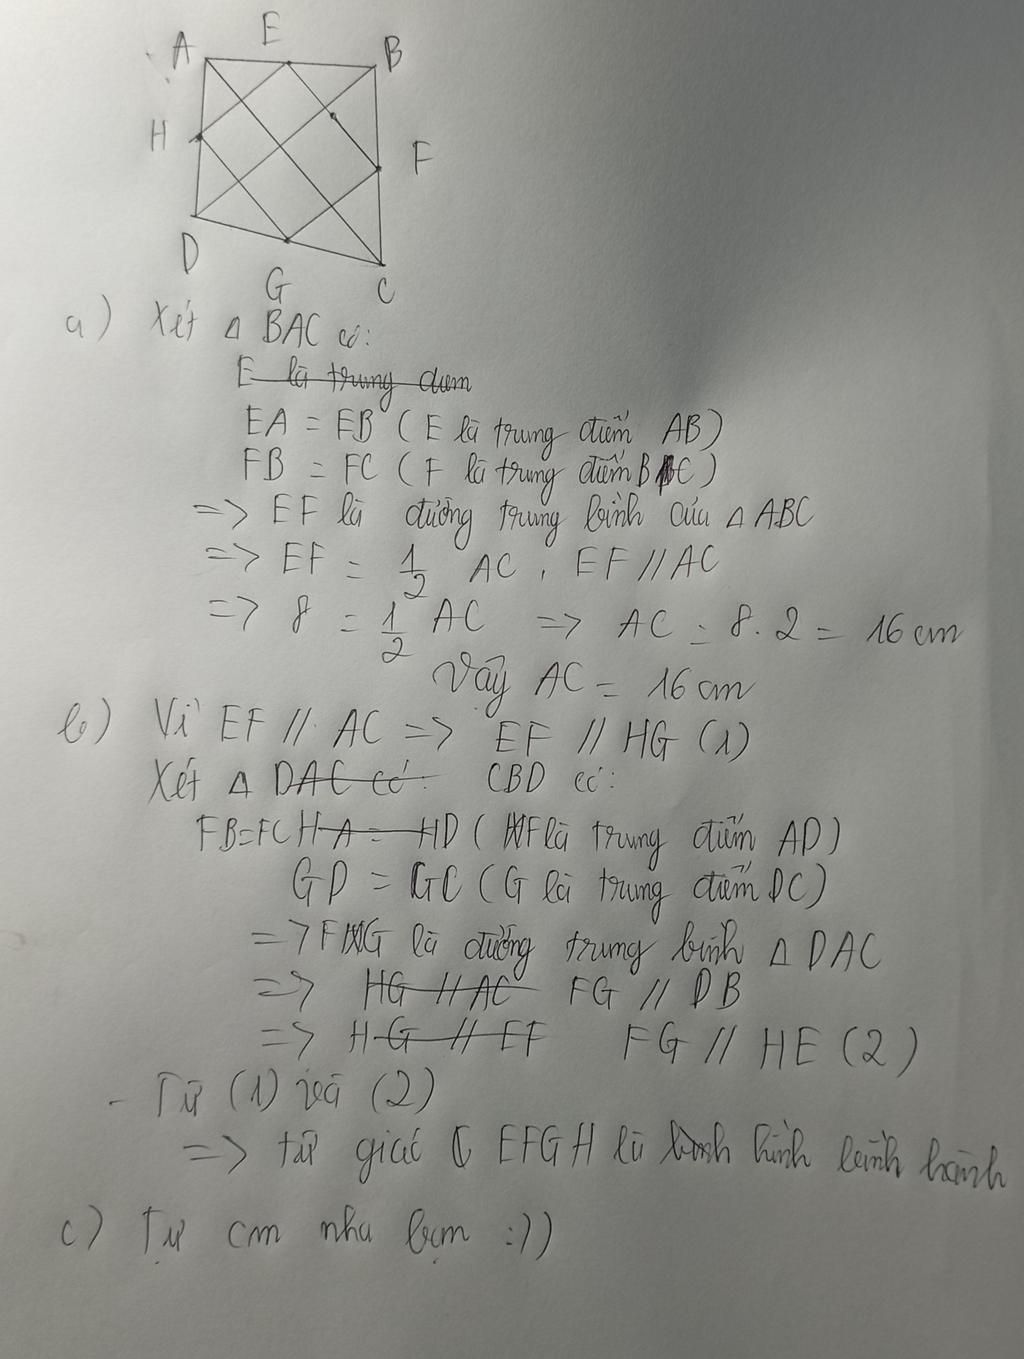 A E B
H F
D G C
a) Xét Δ BAC có:
E là trung điểm
EA = EB (E là trung điểm AB)
FB = FC (F là trung điểm BC)
=> EF là đường trung bình của Δ ABC
=> EF = 1/2 AC, EF // AC
=> 8 = 1/2 AC => AC = 8.2 = 16 cm
Vậy AC = 16 cm
b) Vì EF // AC => EF // HG (1)
Xét Δ DAC có: CBD có:
FB=FC HA = HD (F là trung điểm AD)
GD = GC (G là trung điểm DC)
=> FG là đường trung bình Δ DAC
=> HG // AC FG // DB
=> HG // EF FG // HE (2)
- Từ (1) và (2)
=> tứ giác EFGH là hình bình hành
c) Tự cm nha bạn :))